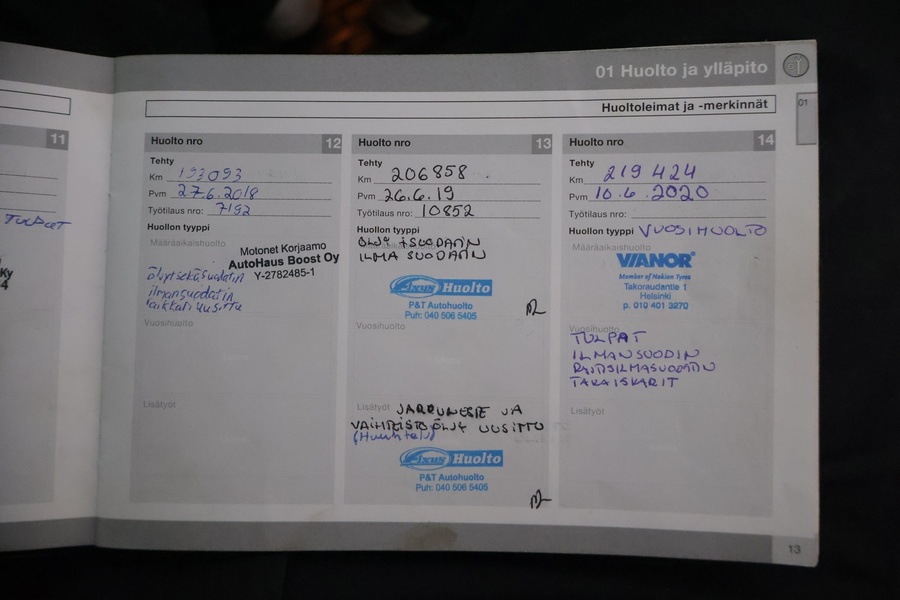 01 Huolto ja ylläpito
01
Huoltoleimat ja -merkinnät
11
TULPPET
Ky
4
Huolto nro 12
Tehty
Km 193093
Pvm 27.6.2018
Työtilaus nro: 7192
Huollon tyyppi
Määräaikaishuolto
Motonet Korjaamo
AutoHaus Boost Oy
Y-2782485-1
öljyt sekä suodatin
ilmansuodatin
raikkari uusittu
Vuosihuolto
Lisätyöt
Huolto nro 13
Tehty
Km 206858
Pvm 26.6.19
Työtilaus nro: 10852
Huollon tyyppi
ÖLJY + SUODATIN
ILMA SUODATIN
Axus Huolto
P&T Autohuolto
Puh: 040 506 5405
Vuosihuolto
Lisätyöt JARRUNESTE JA
VAIHTEISTOÖLJY UUSITTU
(Huuhtelu)
Axus Huolto
P&T Autohuolto
Puh: 040 506 5405
Huolto nro 14
Tehty
Km 219 424
Pvm 10.6.2020
Työtilaus nro:
Huollon tyyppi VUOSIHUOLTO
Määräaikaishuolto
VIANOR
Member of Nokian Tyres
Takoraudantie 1
Helsinki
p. 010 401 3270
Vuosihuolto
TULPAT
ILMANSUODIN
RAITISILMASUODATIN
TAKAISKARIT
Lisätyöt
13